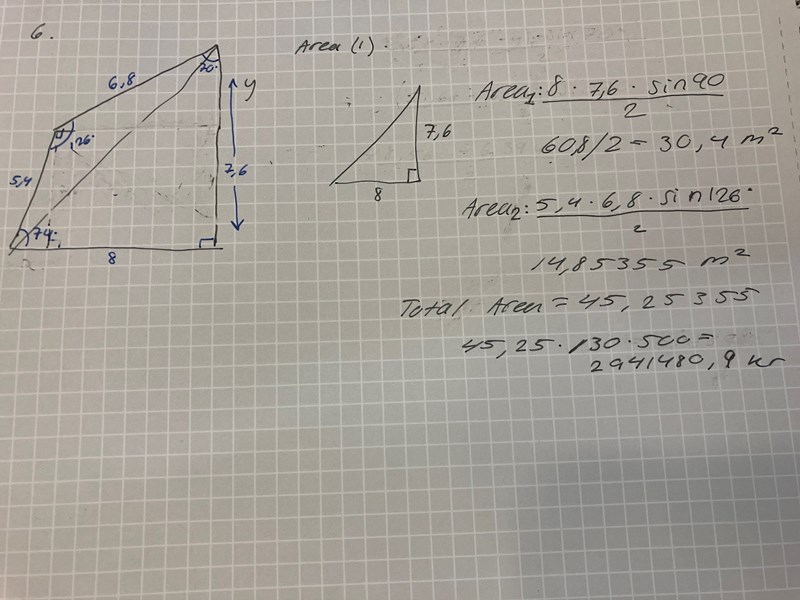 6.
Area (1).
6,8
70°
y
126°
5,4
7,6
74°
8
7,6
8
Area1: 8 · 7,6 · sin 90
2
60,8/2 = 30,4 m²
Area2: 5,4 · 6,8 · sin 126°
2
14,85355 m²
Total Area = 45,25355
45,25 · 130 · 500 =
2941480,9 kr